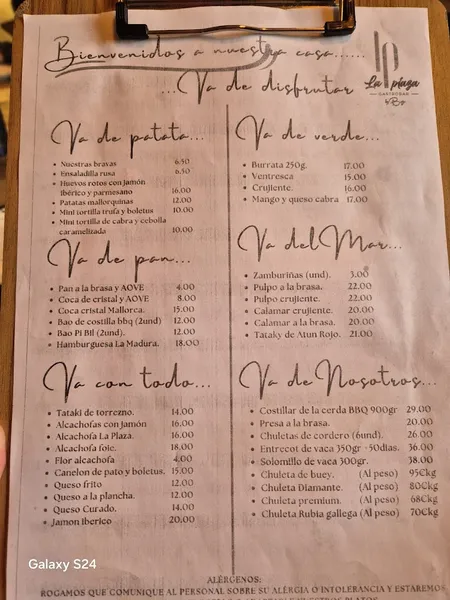 Bienvenidos a nuestra casa......
...Va de disfrutar
La plaza
GASTROBAR
Va de patata...
Nuestras bravas 6.50
Ensaladilla rusa 6.50
Huevos rotos con jamón
ibérico y parmesano 16.00
Patatas mallorquinas 12.00
Mini tortilla trufa y boletus 10.00
Mini tortilla de cabra y cebolla
caramelizada 10.00
Va de pan...
Pan a la brasa y AOVE 4.00
Coca de cristal y AOVE 8.00
Coca cristal Mallorca. 15.00
Bao de costilla bbq (2und) 12.00
Bao Pi Bil (2und). 12.00
Hamburguesa La Madura. 18.00
Va con todo...
Tataki de torrezno. 14.00
Alcachofas con jamón 16.00
Alcachofa La Plaza. 16.00
Alcachofa foie. 18.00
Flor alcachofa 4.00
Canelon de pato y boletus. 15.00
Queso frito 12.00
Queso a la plancha. 12.00
Queso Curado. 14.00
Jamon iberico 20.00
Va de verde...
Burrata 250g. 17.00
Ventresca 15.00
Crujiente. 16.00
Mango y queso cabra 17.00
Va del Mar...
Zamburiñas (und). 3.00
Pulpo a la brasa. 22.00
Pulpo crujiente. 22.00
Calamar crujiente. 20.00
Calamar a la brasa. 20.00
Tataky de Atun Rojo. 21.00
Va de Nosotros...
Costillar de la cerda BBQ 900gr 29.00
Presa a la brasa. 20.00
Chuletas de cordero (6und). 26.00
Entrecot de vaca 350gr -50dias. 36.00
Solomillo de vaca 300gr. 38.00
Chuleta de buey. (Al peso) 95€kg
Chuleta Diamante. (Al peso) 80€kg
Chuleta premium. (Al peso) 68€kg
Chuleta Rubia gallega (Al peso) 70€kg
ALÉRGENOS:
ROGAMOS QUE COMUNIQUE AL PERSONAL SOBRE SU ALÉRGIA O INTOLERANCIA Y ESTAREMOS
Galaxy S24